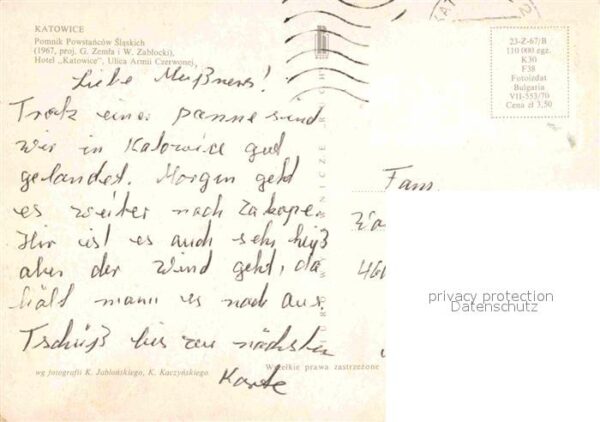 KATOWICE
Pomnik Powstańców Śląskich
(1967, proj. G. Zemła i W. Zabłocki),
Hotel „Katowice", Ulica Armii Czerwonej,
Liebe Meißners!
Trotz einer panne sind
wir in Katowice gut
gelandet. Morgen geht
es weiter nach Zakopa.
Hir ist es auch sehr heiß
aber der Wind geht, da
hält mann es noch aus.
Tschüß bis zur nächsten
Karte
wg fotografii K. Jabłońskiego, K. Kaczyńskiego
Wszelkie prawa zastrzeżone
23-Z-67/B
110 000 egz.
K30
F38
Fotoizdat
Bulgaria
VII-553/70
Cena zł 3,50
Fam.
privacy protection
Datenschutz